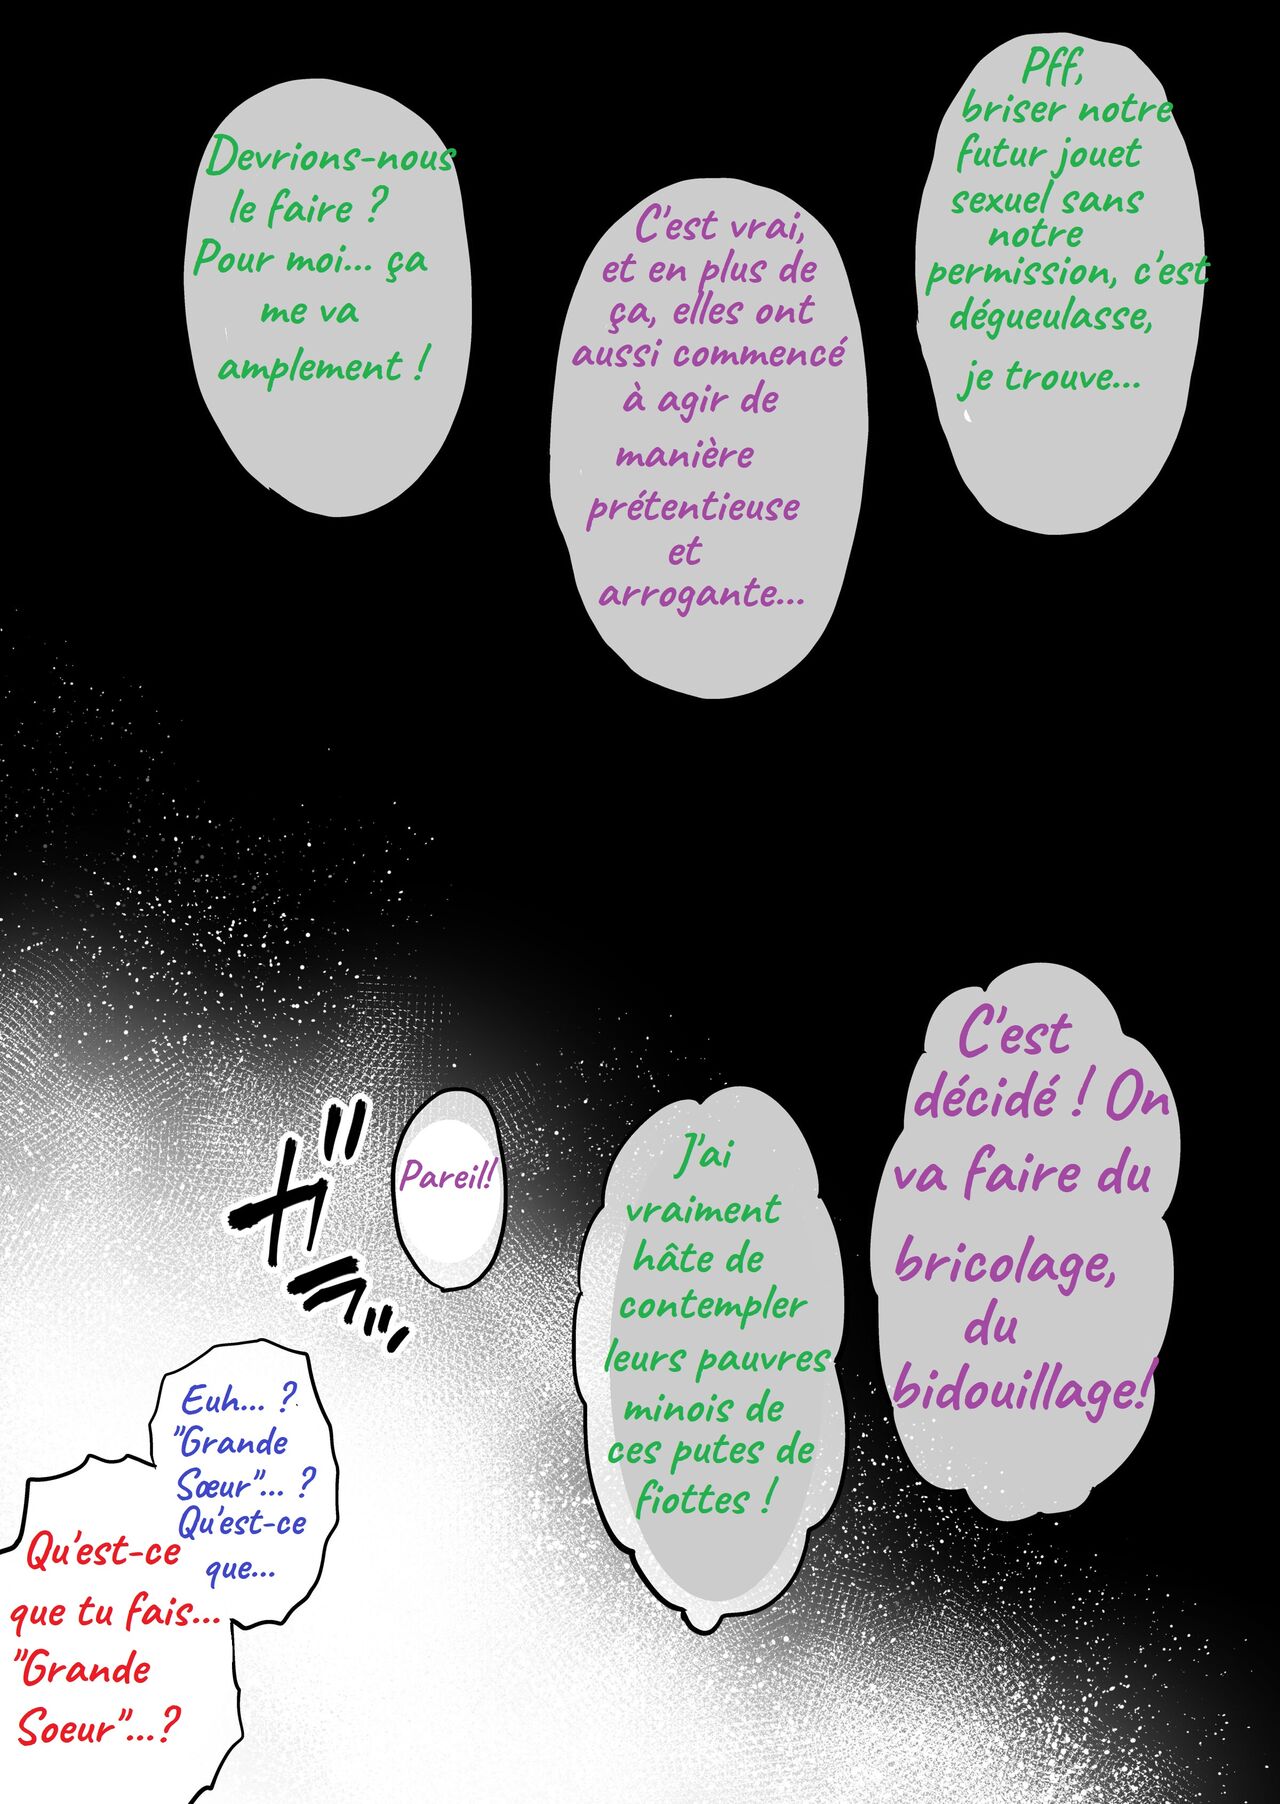 Pff,
briser notre
futur jouet
sexuel sans
notre
permission, c'est
dégueulasse,
je trouve...
C'est vrai,
et en plus de
ça, elles ont
aussi commencé
à agir de
manière
prétentieuse
et
arrogante...
Devrions-nous
le faire ?
Pour moi... ça
me va
amplement !
C'est
décidé ! On
va faire du
bricolage,
du
bidouillage!
J'ai
vraiment
hâte de
contempler
leurs pauvres
minois de
ces putes de
fiottes !
Pareil!
ガラッ
Euh... ?
"Grande
Sœur"... ?
Qu'est-ce
que...
Qu'est-ce
que tu fais...
"Grande
Soeur"...?